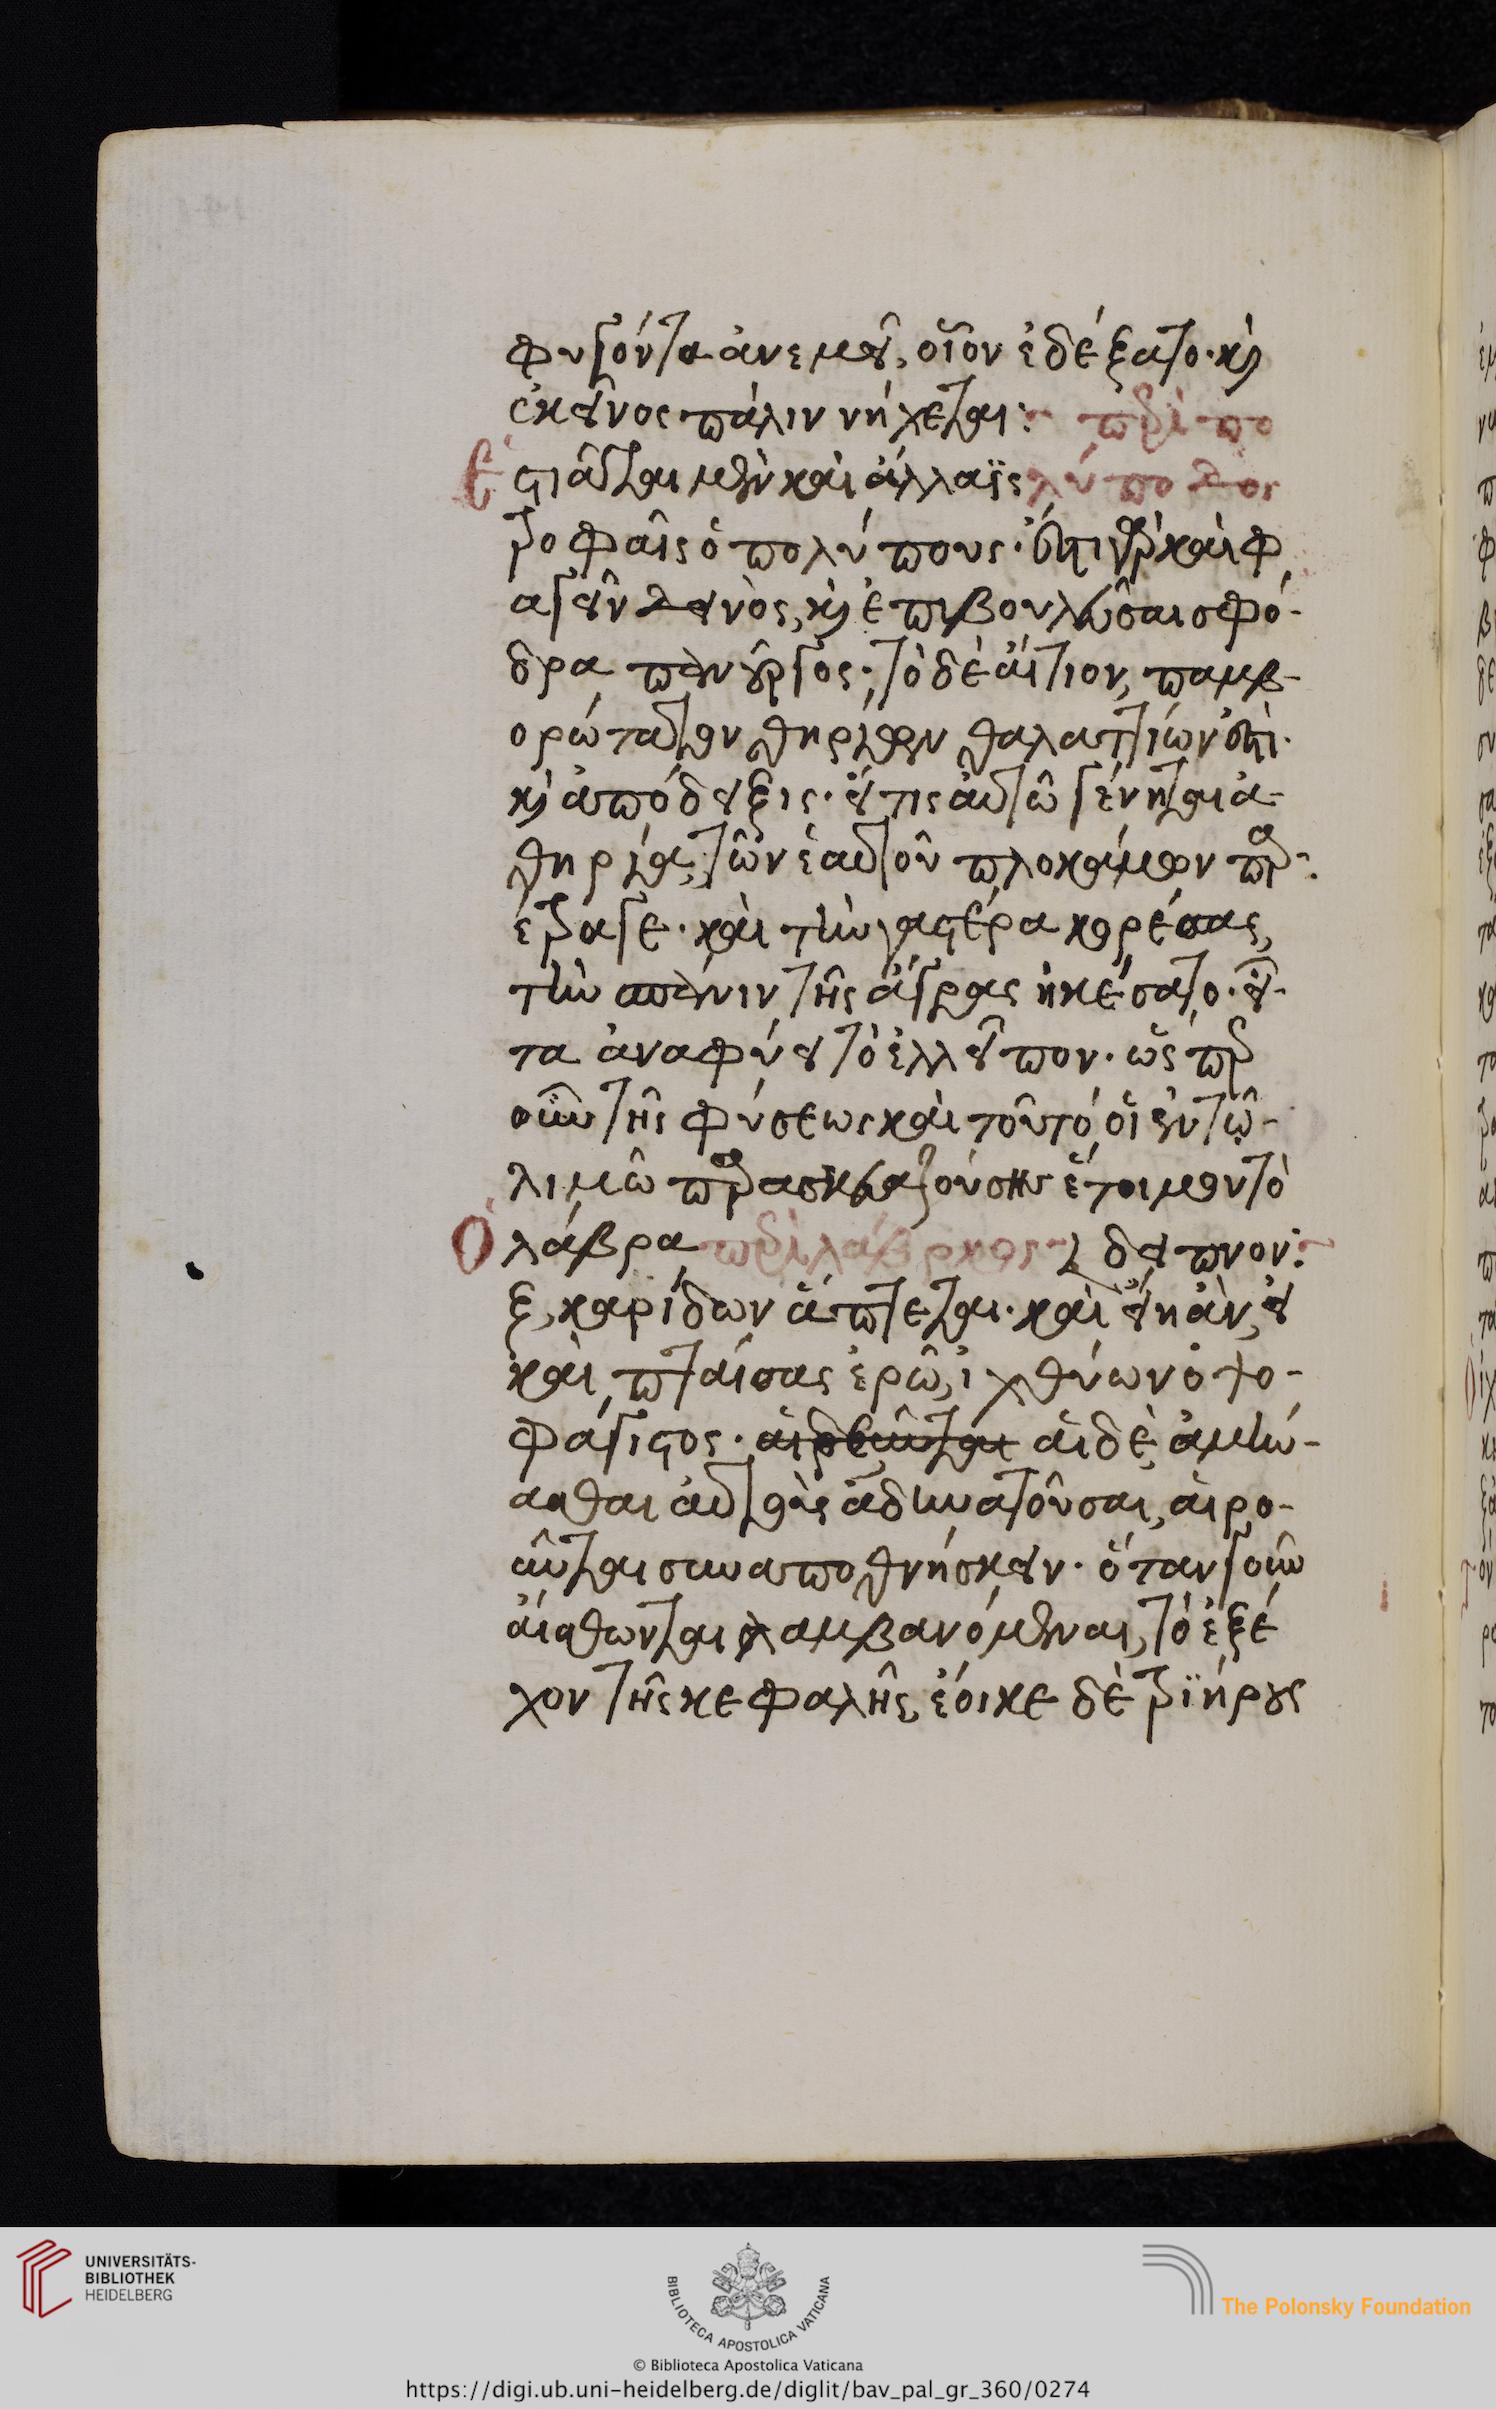 φυγόντα ἀνεμεῖ, οἷον ἐδέξατο· κὶ
ἐκεῖνος πάλιν νήχεται: περὶ πο
Ἑστιᾶται μὲν καὶ ἄλλαϊς λύποδος
τροφαῖς ὁ πολύπους· ἔστι γὰρ καὶ φ
αγεῖν δεινὸς, κὶ ἐπιβουλεῦσαι σφό-
δρα πανοῦργος· τὸ δὲ αἴτιον, παμβ-
ορώτατον θηρίον θαλαττίων ἐστὶ·
κὶ ἀπόδειξις· εἴ τις αὐτῶ γένηται ἀ-
θηρία, τῶν ἑαυτοῦ πλοκάμων παρ-
έτραγε· καὶ τὴν γαστέρα κορέσας,
τὴν σπάνιν τῆς ἄγρας ἠκέσατο· εἶ-
τα ἀναφύει τὸ ἐλλεῖπον· ὥσπερ
οὖν τῆς φύσεως καὶ τοῦτό οἱ ἐν τῷ
λιμῶ παρασκευαζούσης ἕτοιμον τὸ
Ὁ λάβρα περὶ λάβρακος δεῖπνον:
ξ, καρίδων ἅπτεται· καὶ εἴη ἂν, εἰ
καὶ πταίσας ἐρῶ, ἰχθύων ὀψο-
φάγιστος· αἱροῦνται αἱ δὲ ἀμύν-
ασθαι αὐτοὺς ἀδυνατοῦσαι, αἱρο-
ῦνται συναποθνήσκειν· ὅταν γοῦν
αἴσθωνται λαμβανόμεναι, τὸ ἐξέ
χον τῆς κεφαλῆς, ἔοικε δὲ τριήρους
UNIVERSITÄTS-
BIBLIOTHEK
HEIDELBERG
BIBLIOTECA APOSTOLICA VATICANA
The Polonsky Foundation
© Biblioteca Apostolica Vaticana
https://digi.ub.uni-heidelberg.de/diglit/bav_pal_gr_360/0274